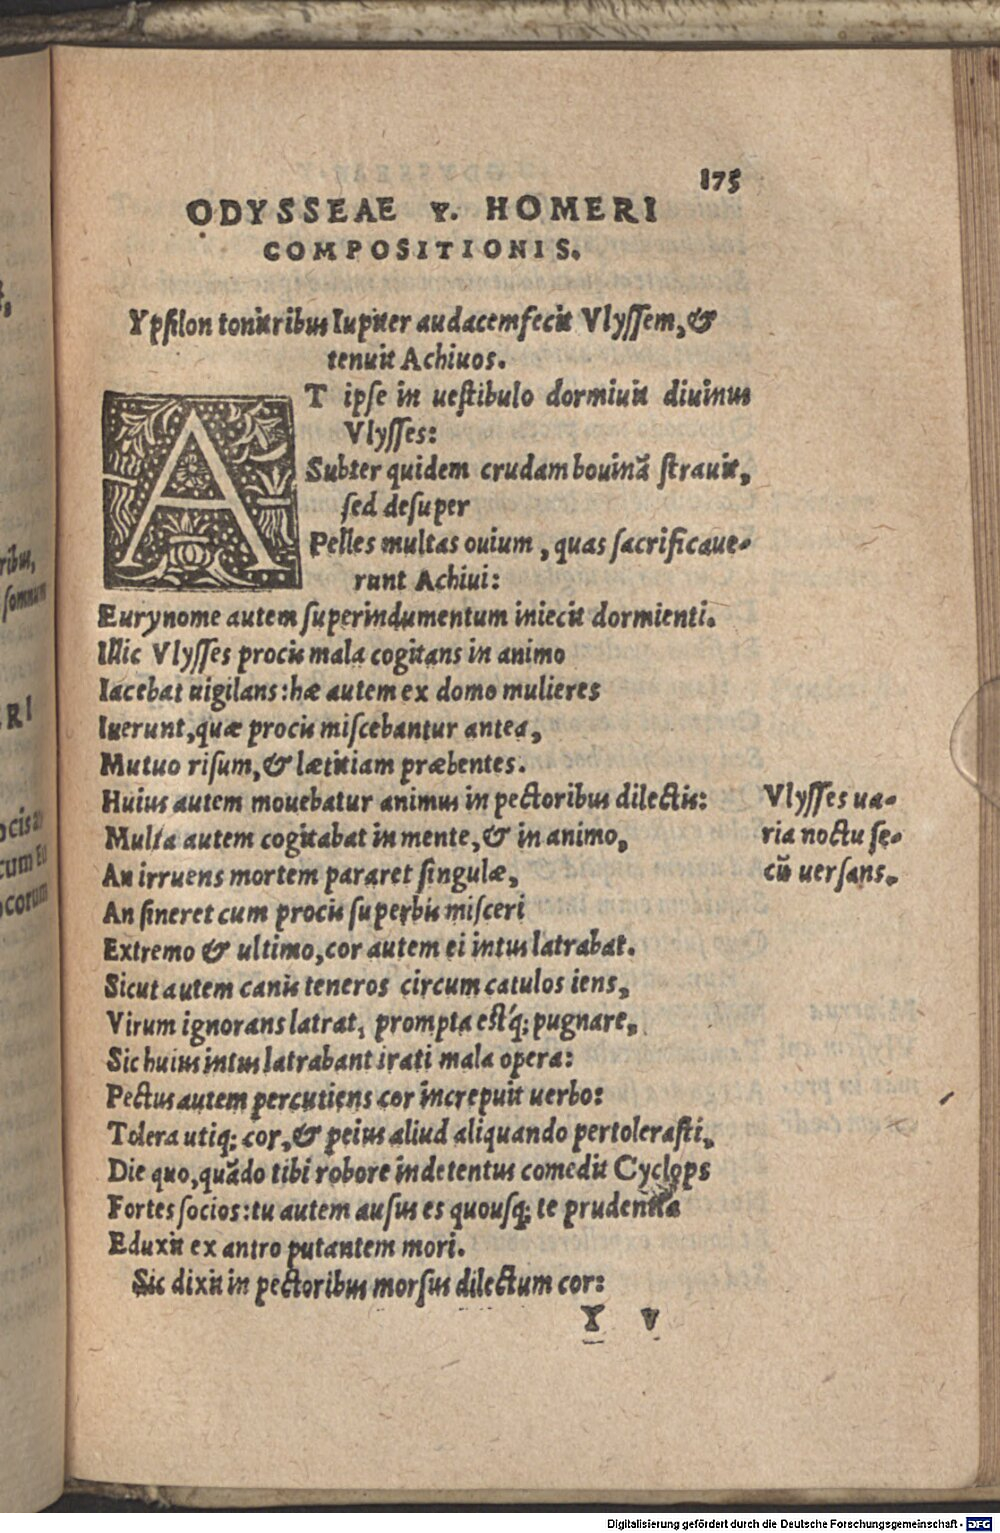 175
ODYSSEAE Y. HOMERI
COMPOSITIONIS.
Ypsilon tonitribus Iupiter audacem fecit Vlyssem, &
tenuit Achiuos.
AT ipse in uestibulo dormiuit diuinus
Vlysses:
Subter quidem crudam bouinã strauit,
sed desuper
Pelles multas ouium, quas sacrificaue-
runt Achiui:
Eurynome autem superindumentum iniecit dormienti.
Illic Vlysses procis mala cogitans in animo
Iacebat uigilans: hæ autem ex domo mulieres
Iuerunt, quæ procis miscebantur antea,
Mutuo risum, & lætitiam præbentes.
Huius autem mouebatur animus in pectoribus dilectis:
Vlysses ua-
Multa autem cogitabat in mente, & in animo,
ria noctu se-
An irruens mortem pararet singulæ,
cũ uersans.
An sineret cum procis superbis misceri
Extremo & ultimo, cor autem ei intus latrabat.
Sicut autem canis teneros circum catulos iens,
Virum ignorans latrat, prompta estq́; pugnare,
Sic huius intus latrabant irati mala opera:
Pectus autem percutiens cor increpuit uerbo:
Tolera utiq; cor, & peius aliud aliquando pertolerasti,
Die quo, quãdo tibi robore indetentus comedit Cyclops
Fortes socios: tu autem ausus es quousq; te prudentia
Eduxit ex antro putantem mori.
Sic dixit in pectoribus morsus dilectum cor:
Y v
ribus,
somnum
ERI
cum Eu
ocorum
Digitalisierung gefördert durch die Deutsche Forschungsgemeinschaft - DFG